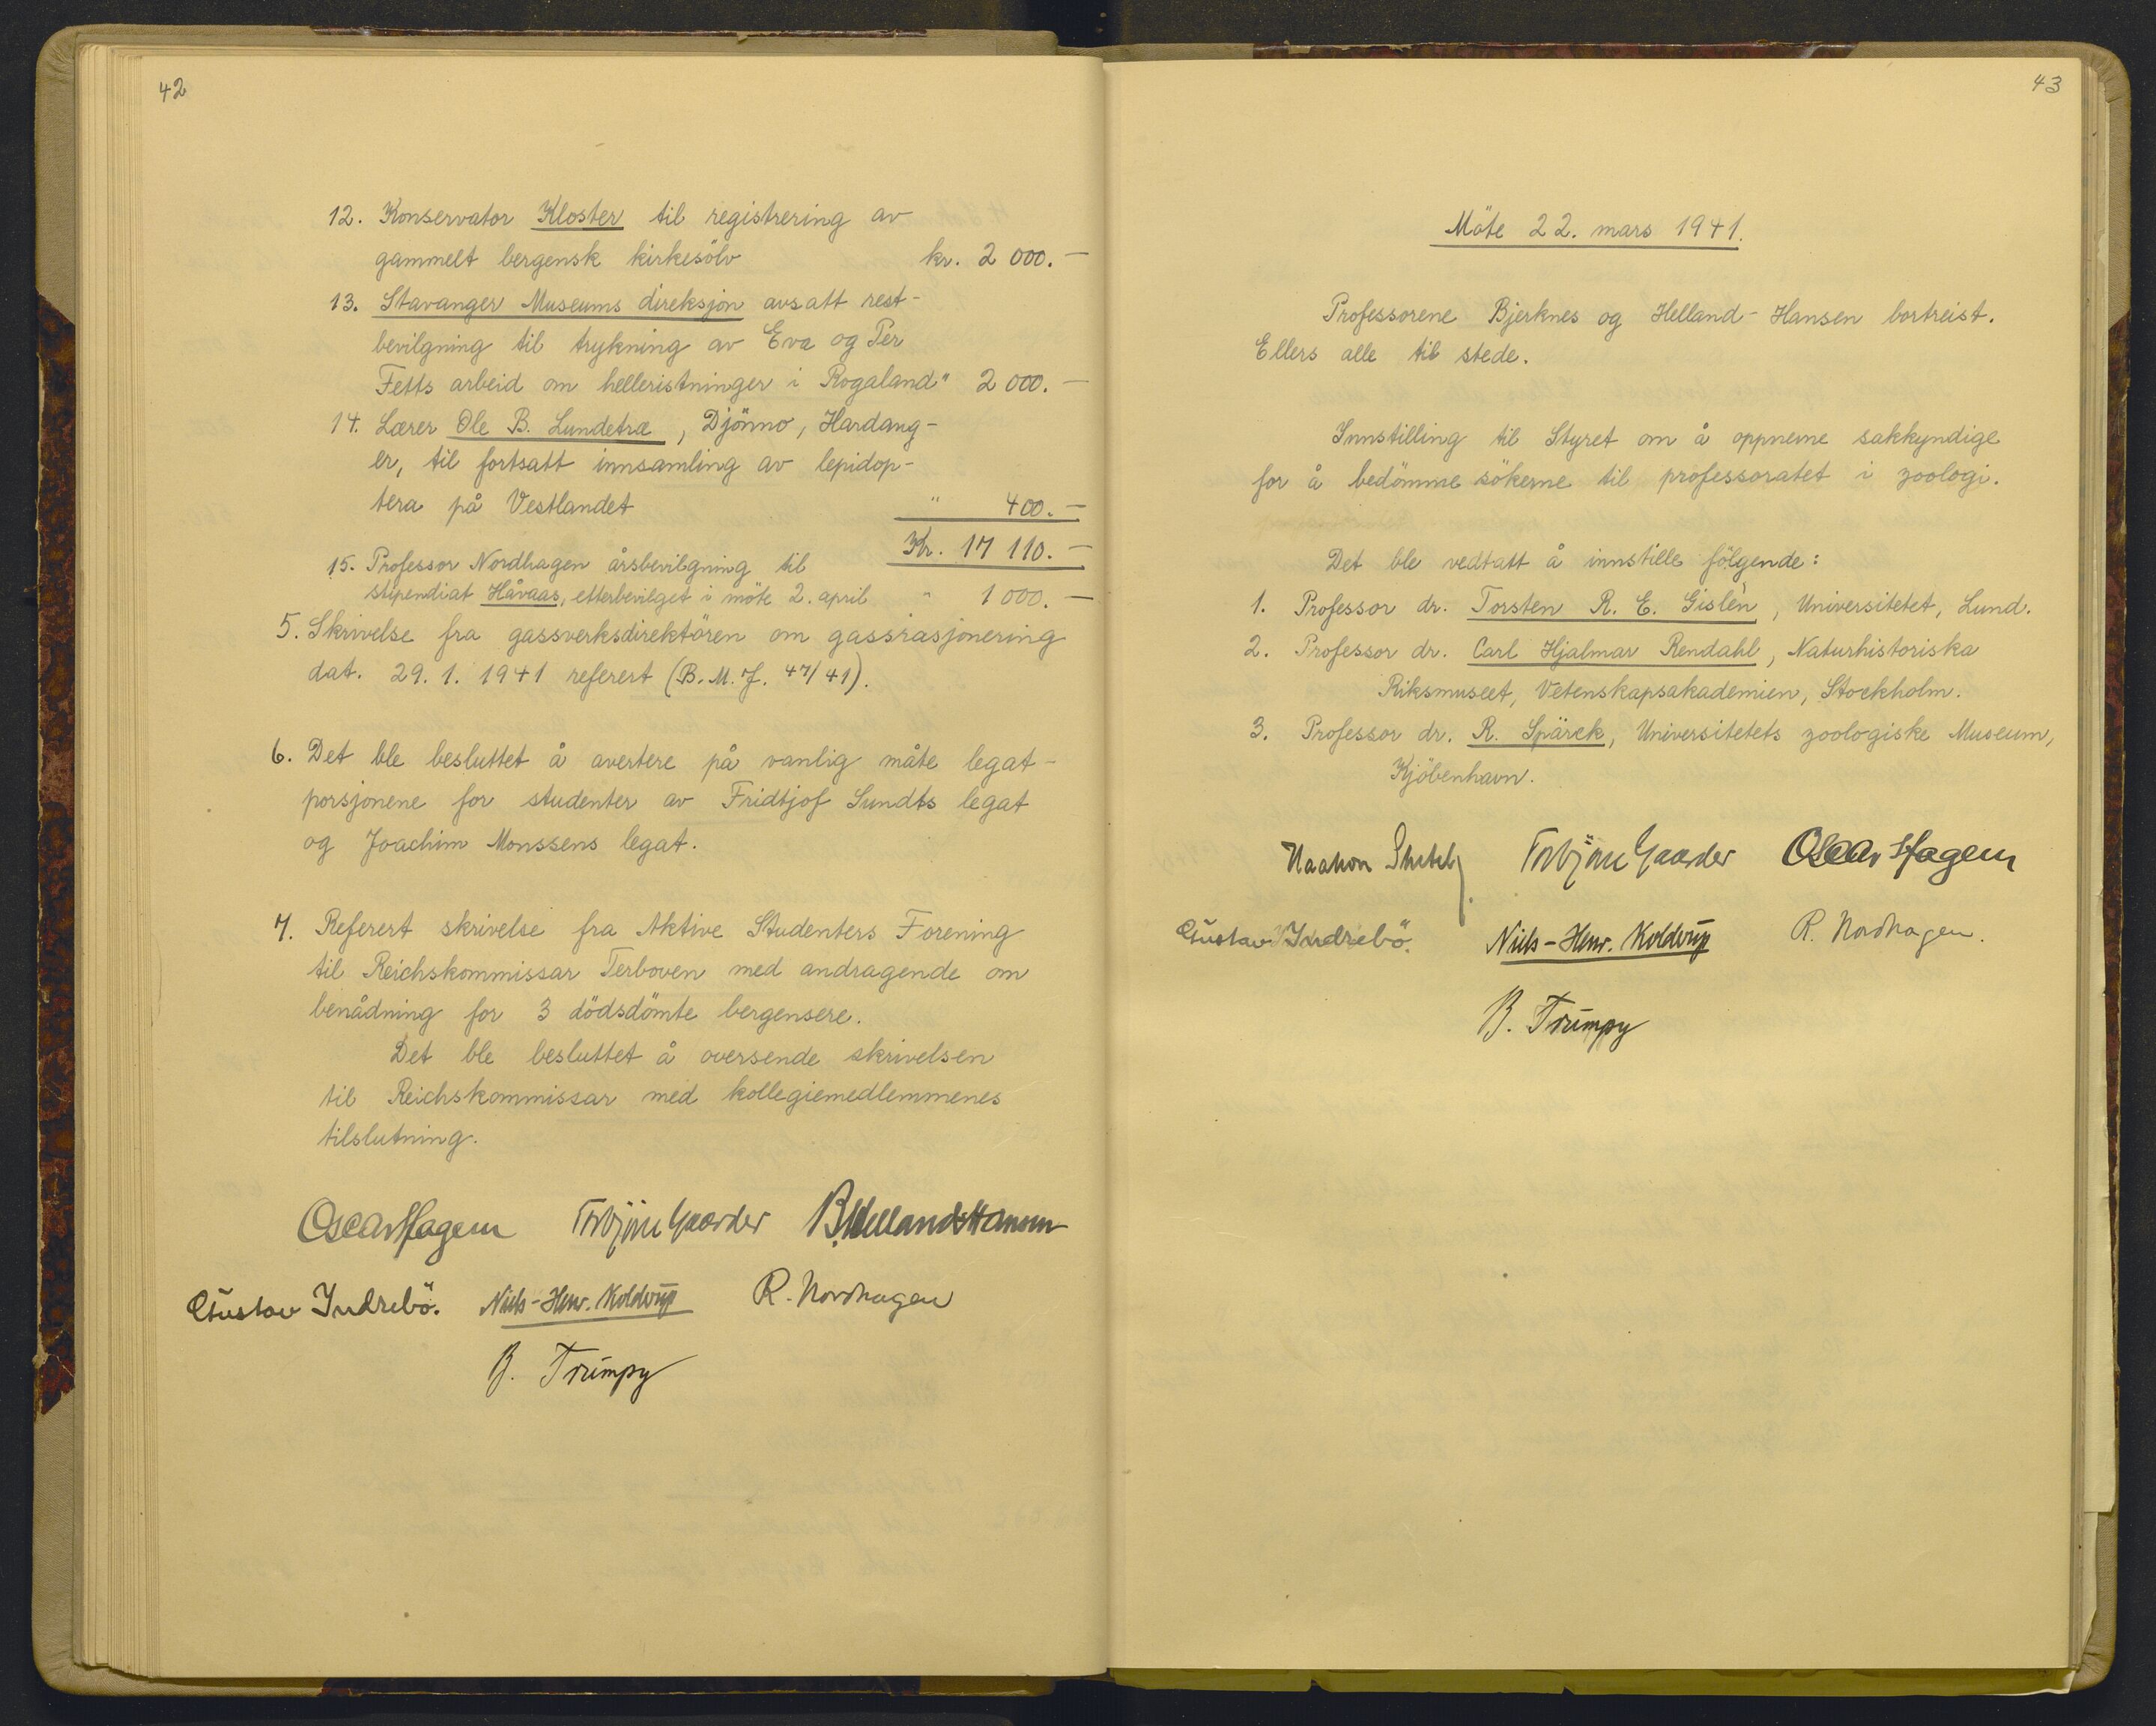 42
12. Konservator Kloster til registrering av
gammelt bergensk kirkesölv kr. 2 000.—
13. Stavanger Museums direksjon avsatt rest-
bevilgning til trykning av Eva og Per
Fetts arbeid om helleristninger i Rogaland " 2 000.—
14. Lærer Ole B. Lundetræ, Djönno, Hardang-
er, til fortsatt innsamling av lepidop-
tera på Vestlandet " 400.—
Kr. 17 110.—
15. Professor Nordhagen årsbevilgning til
stipendiat Håvaas, etterbevilget i möte 2. april " 1 000.—
5. Skrivelse fra gassverksdirektören om gassrasjonering
dat. 29. 1. 1941 referert (B. M. J. 47/41).
6. Det ble besluttet å avertere på vanlig måte legat-
porsjonene for studenter av Fridtjof Sundts legat
og Joachim Monssens legat.
7. Referert skrivelse fra Aktive Studenters Forening
til Reichskommissar Terboven med andragende om
benådning for 3 dödsdömte bergensere.
Det ble besluttet å oversende skrivelsen
til Reichskommissar med kollegiemedlemmenes
tilslutning.
Oscar Hagem Torbjörn Gaarder B. Helland-Hansen
Gustav Indrebö. Niels-Henr. Kolderup R. Nordhagen
B. Trumpy
43
Möte 22. mars 1941.
Professorene Bjerknes og Helland-Hansen bortreist.
Ellers alle til stede.
Innstilling til Styret om å oppnevne sakkyndige
for å bedömme sökerne til professoratet i zoologi.
Det ble vedtatt å innstille fölgende:
1. Professor dr. Torsten R. E. Gislèn, Universitetet, Lund.
2. Professor dr. Carl Hjalmar Rendahl, Naturhistoriska
Riksmuseet, Vetenskapsakademien, Stockholm.
3. Professor dr. R. Spärck, Universitetets zoologiske Museum,
Kjöbenhavn.
Haakon Shetelig Torbjörn Gaarder Oscar Hagem
Gustav Indrebö. Niels-Henr. Kolderup R. Nordhagen.
B. Trumpy